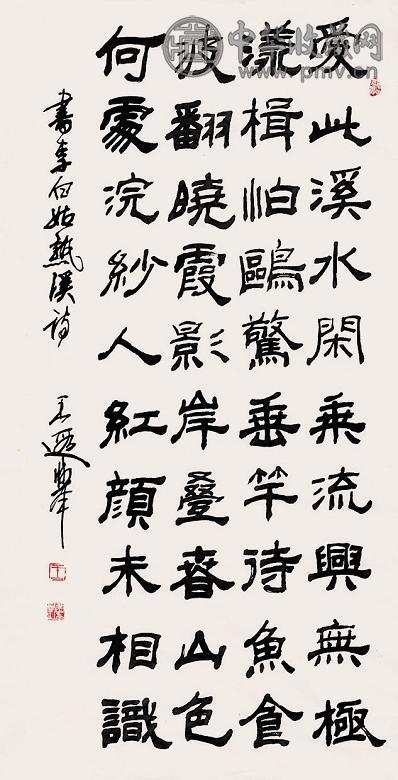 愛此溪水閑乘流興無極
漾楫怕鷗驚垂竿待魚食
波翻曉霞影岸叠春山色
何處浣紗人紅顏未相識
書李白姑熟溪詩 王遐舉
中华收藏网
www.pmv.cn